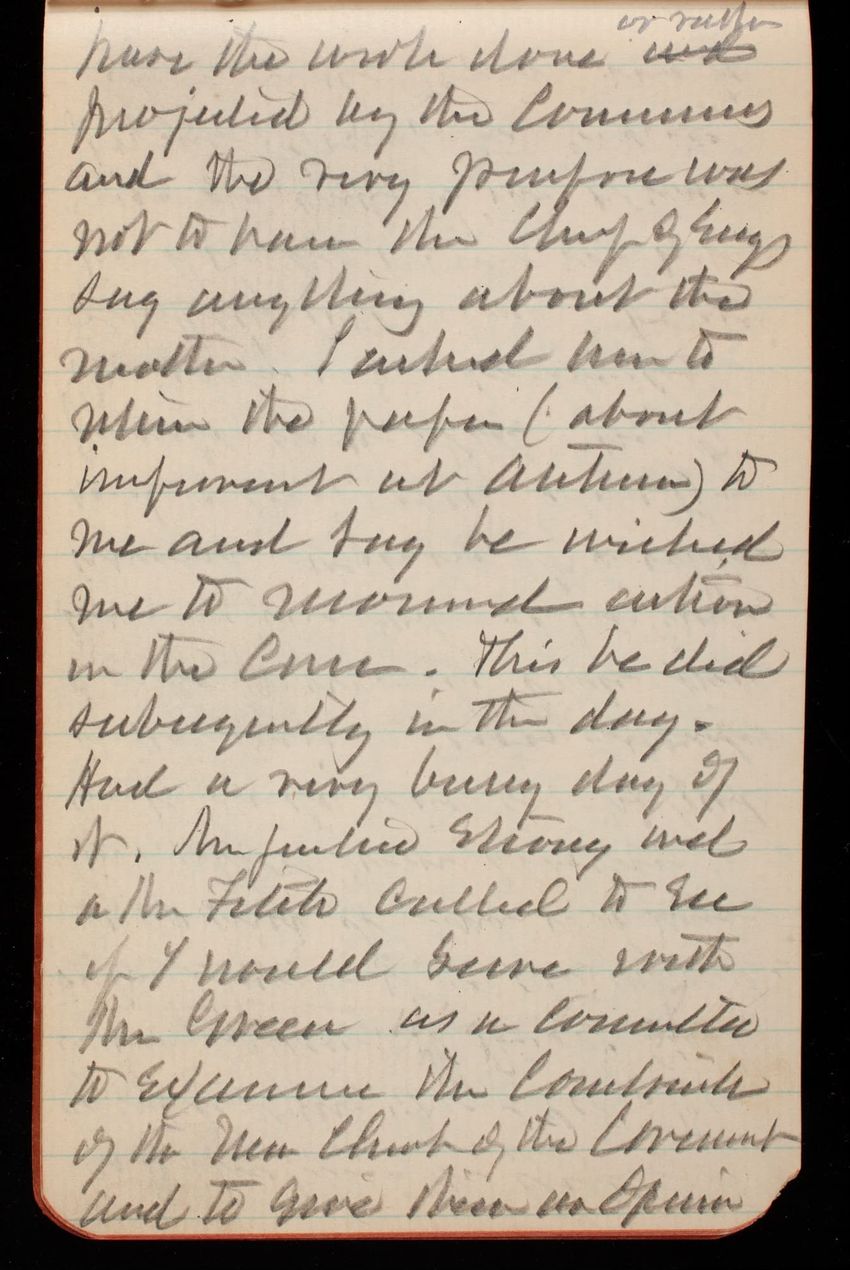 or rather
have the work done and
projected by the Commrs
and the very purpose was
not to have the Chief of Engs
say anything about the
matter. I asked him to
return the paper (about
improvmt at Astoria) to
me and say he wished
me to recommd action
in the Case. This he did
subsequently in the day.
Had a very busy day of
it. Mr Justice Strong and
a Mr Fitch called to see
if I would serve with
Mr Green as a Committee
to Examine the
of the New Church of the Covenant
and to give them an Opinion